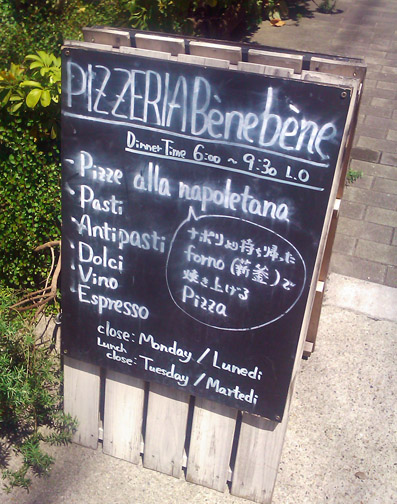 PIZZERIA Bènebène
Dinner Time 6:00 ~ 9:30 L.O
- Pizze alla napoletana
- Pasti
- Antipasti
- Dolci
- Vino
- Espresso
ナポリより持ち帰った
forno (薪釜)で
焼き上げる
Pizza
close: Monday / Lunedi
Lunch
close: Tuesday / Martedi